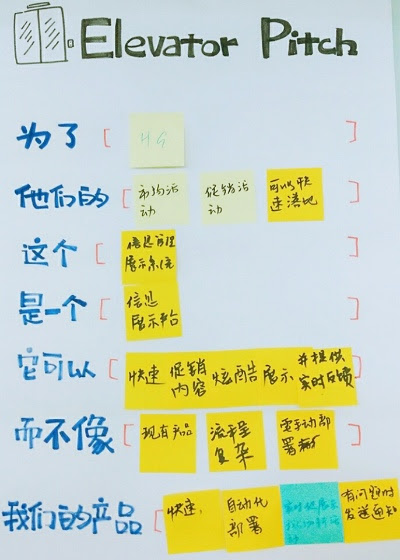 Elevator Pitch
为了 [ HG ]
他们的 [ 市场活动 促销活动 可以快速落地 ]
这个 [ 信息管理展示系统 ]
是一个 [ 信息展示平台 ]
它可以 [ 快速 促销内容 炫酷 展示 并提供实时反馈 ]
而不像 [ 现有产品 流程复杂 需手动部署 ]
我们的产品 [ 快速 自动化部署 有问题时发送通知